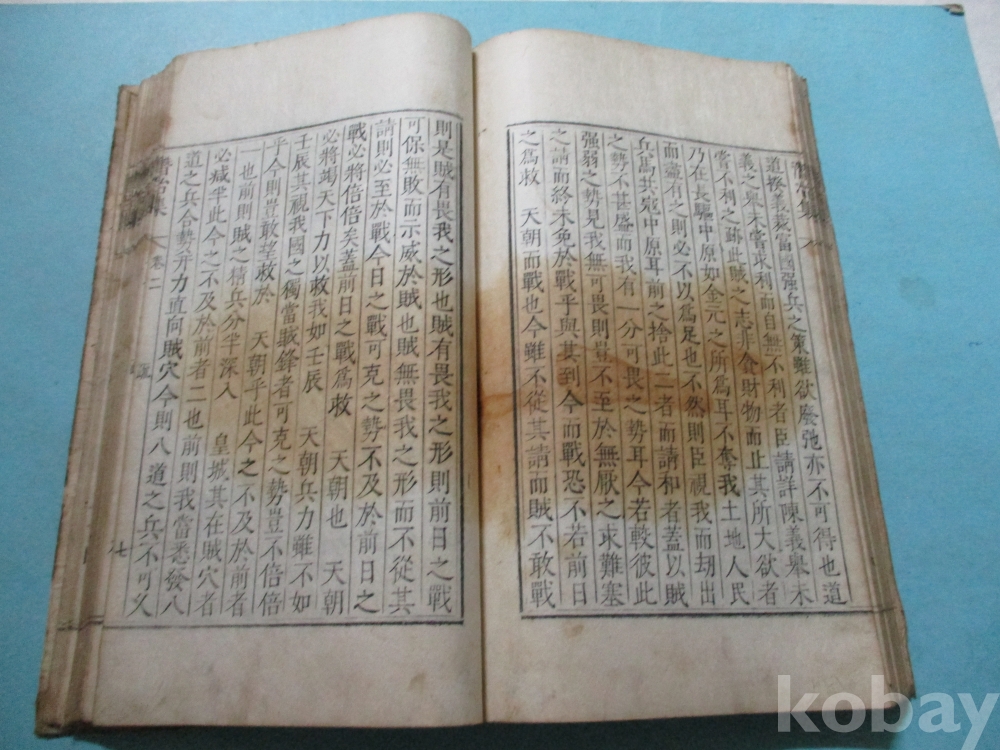 道揆義義當國强兵之策雖欲廢弛亦不可得也道
義之擧未嘗求利而自無不利者臣請詳陳義擧未
嘗不利之跡此賊之志非食財物而止其所大欲者
乃在長驅中原如金元之所爲耳不奪我土地人民
而盡有之則必不以爲足也不然則臣視我而刼出
兵爲共寇中原耳前之捨此二者而請和者蓋以賊
之勢不甚盛而我有一分可畏之勢耳今若較彼此
强弱之勢見我無可畏則豈不至於無厭之求難塞
之請而終未免於戰乎與其到今而戰恐不若前日
之爲救 天朝而戰也今雖不從其請而賊不敢戰
則是賊有畏我之形也賊有畏我之形則前日之戰
可保無敗而示威於賊也賊無畏我之形而不從其
請則必至於戰今日之戰可克之勢不及於前日之
戰必將倍倍矣蓋前日之戰爲救 天朝也 天朝
必將竭天下力以救我如壬辰 天朝兵力雖不如
壬辰其視我國之獨當賊鋒者可克之勢豈不倍倍
乎今則豈敢望救於 天朝乎此今之不及於前者
一也前則賊之精兵分半深入 皇城其在賊穴者
必減半此今之不及於前者二也前則我當悉發八
道之兵合勢幷力直向賊穴今則八道之兵不可又
集 卷二 七
kobay